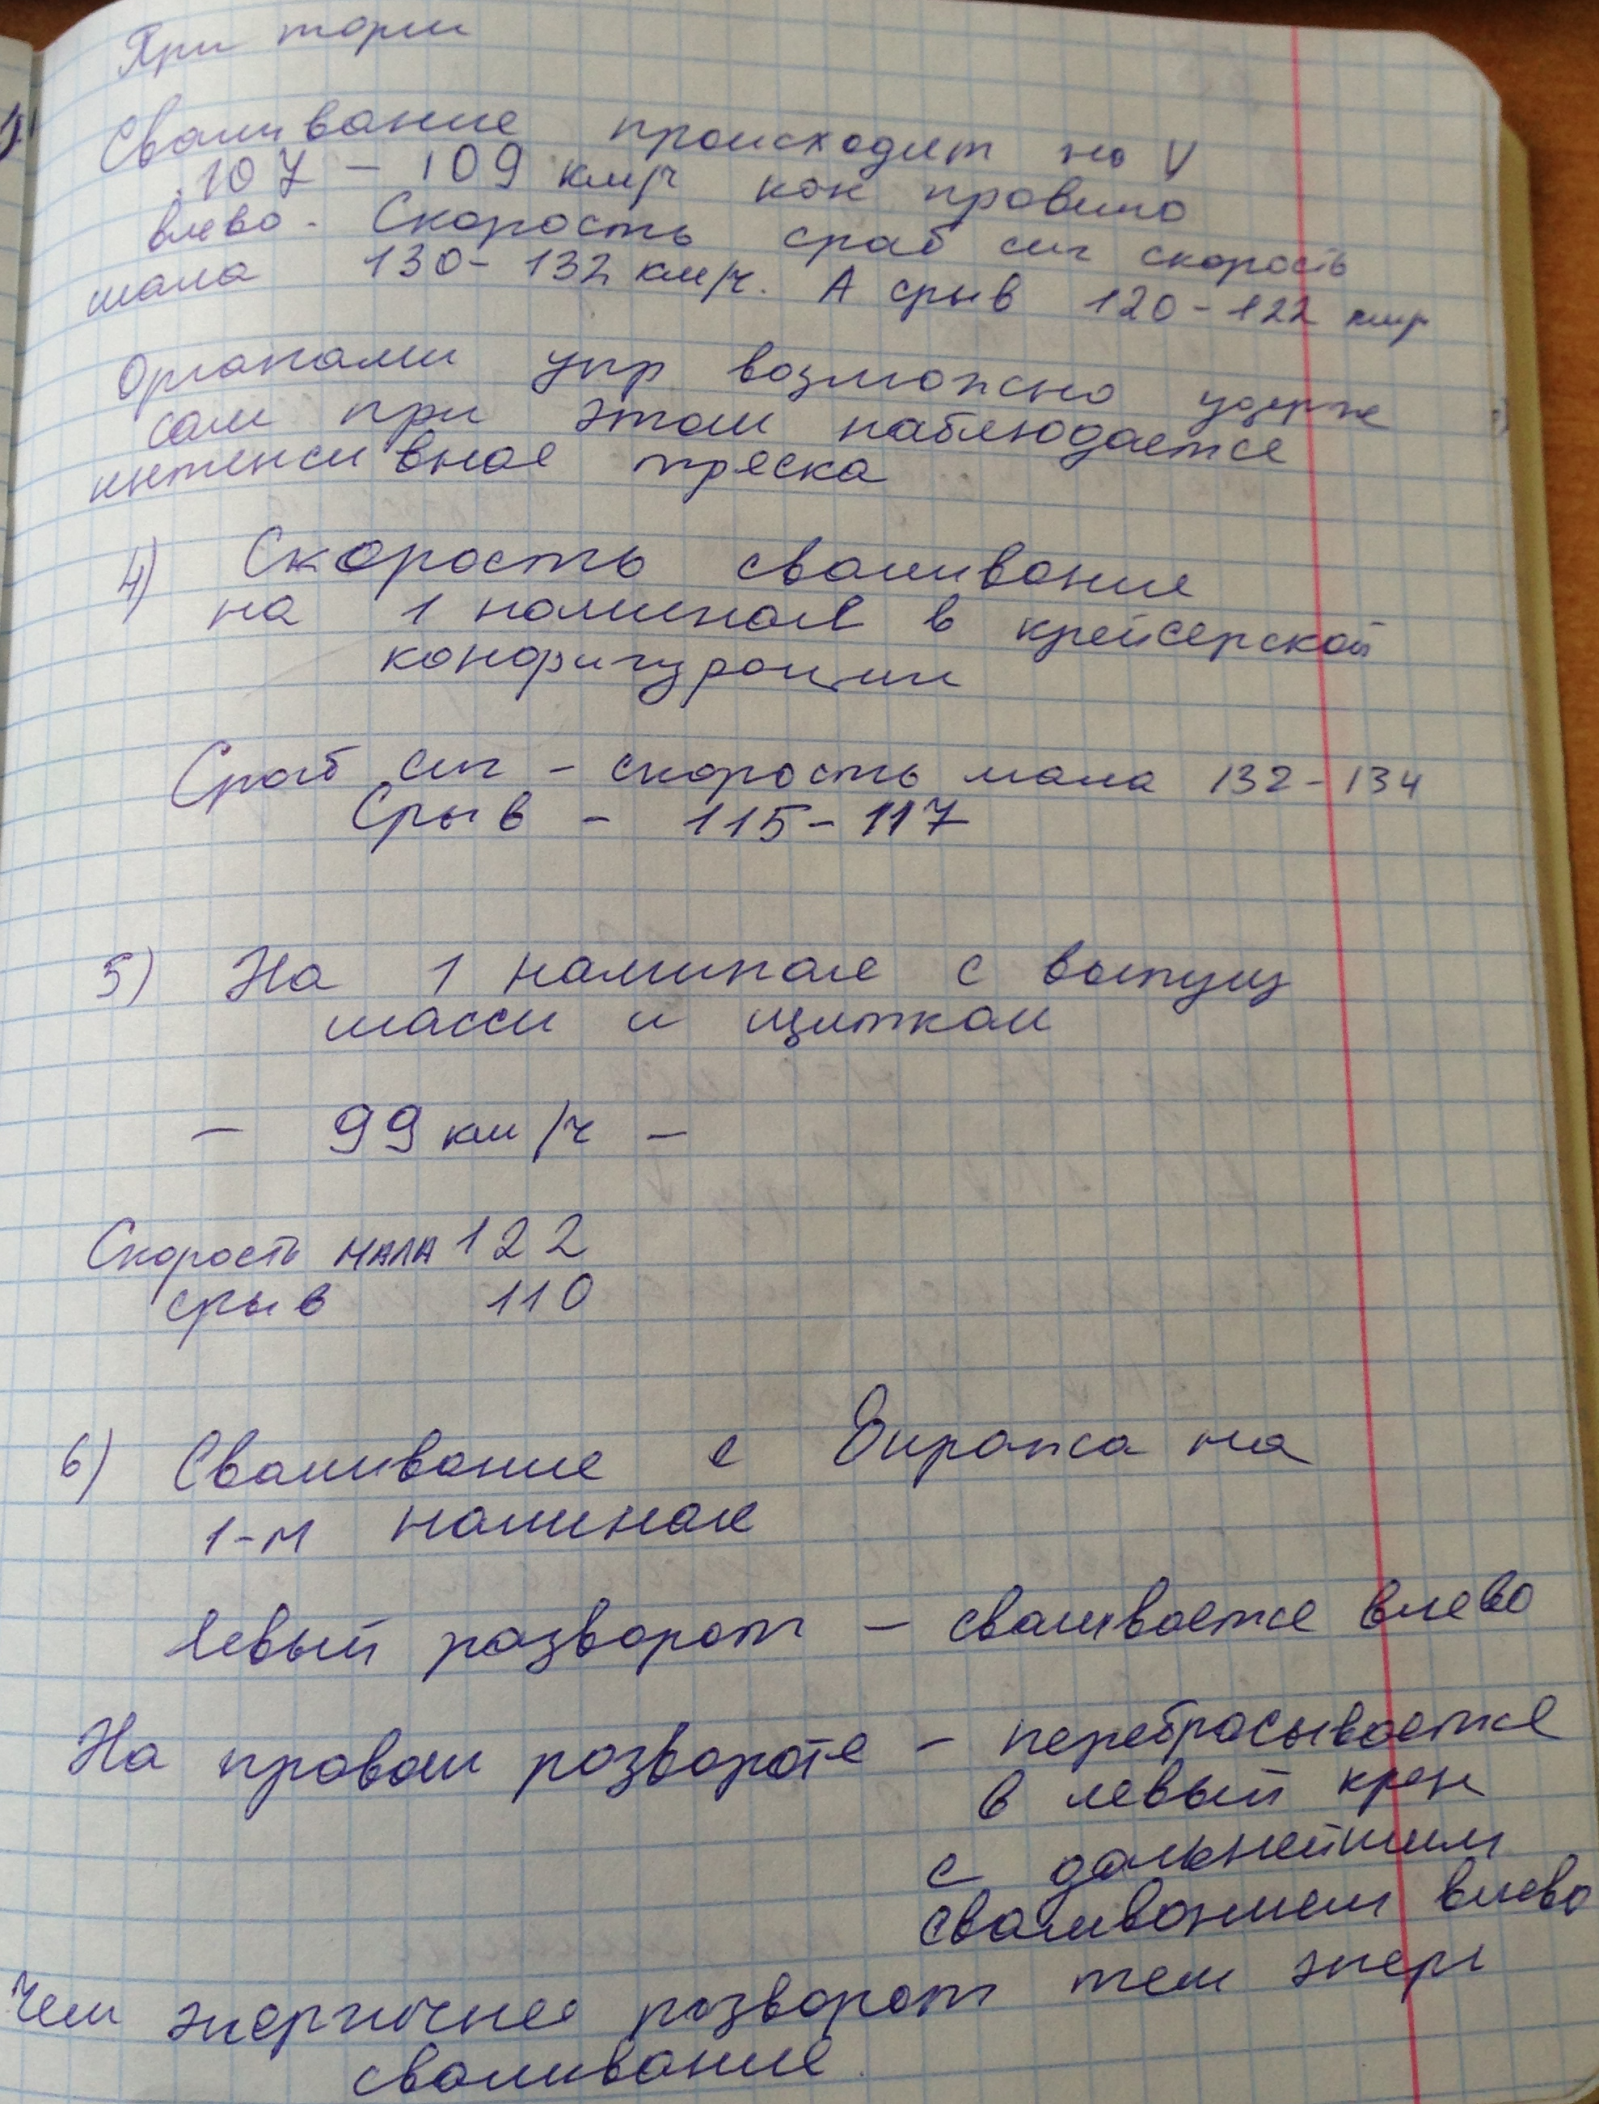 При торм
Сваливание происходит на V
107 - 109 км/ч как правило
влево. Скорость сраб сиг скорость
мала 130 - 132 км/ч. А срыв 120 - 122 км/ч
Органами упр возможно удерж
сам при этом наблюдается
интенсивная тряска
4) Скорость сваливание
на 1 номинале в крейсерской
конфигурации
Сраб сиг - скорость мала 132 - 134
Срыв - 115 - 117
5) На 1 номинале с выпущ
шасси и щитком
- 99 км/ч -
Скорость МАЛА 122
срыв 110
6) Сваливание с Виража на
1-м номинале
левый разворот - сваливается влево
На правом развороте - перебрасывается
в левый крен
с дальнейшим
сваливанием влево
Чем энергичнее разворот тем энерг
сваливание